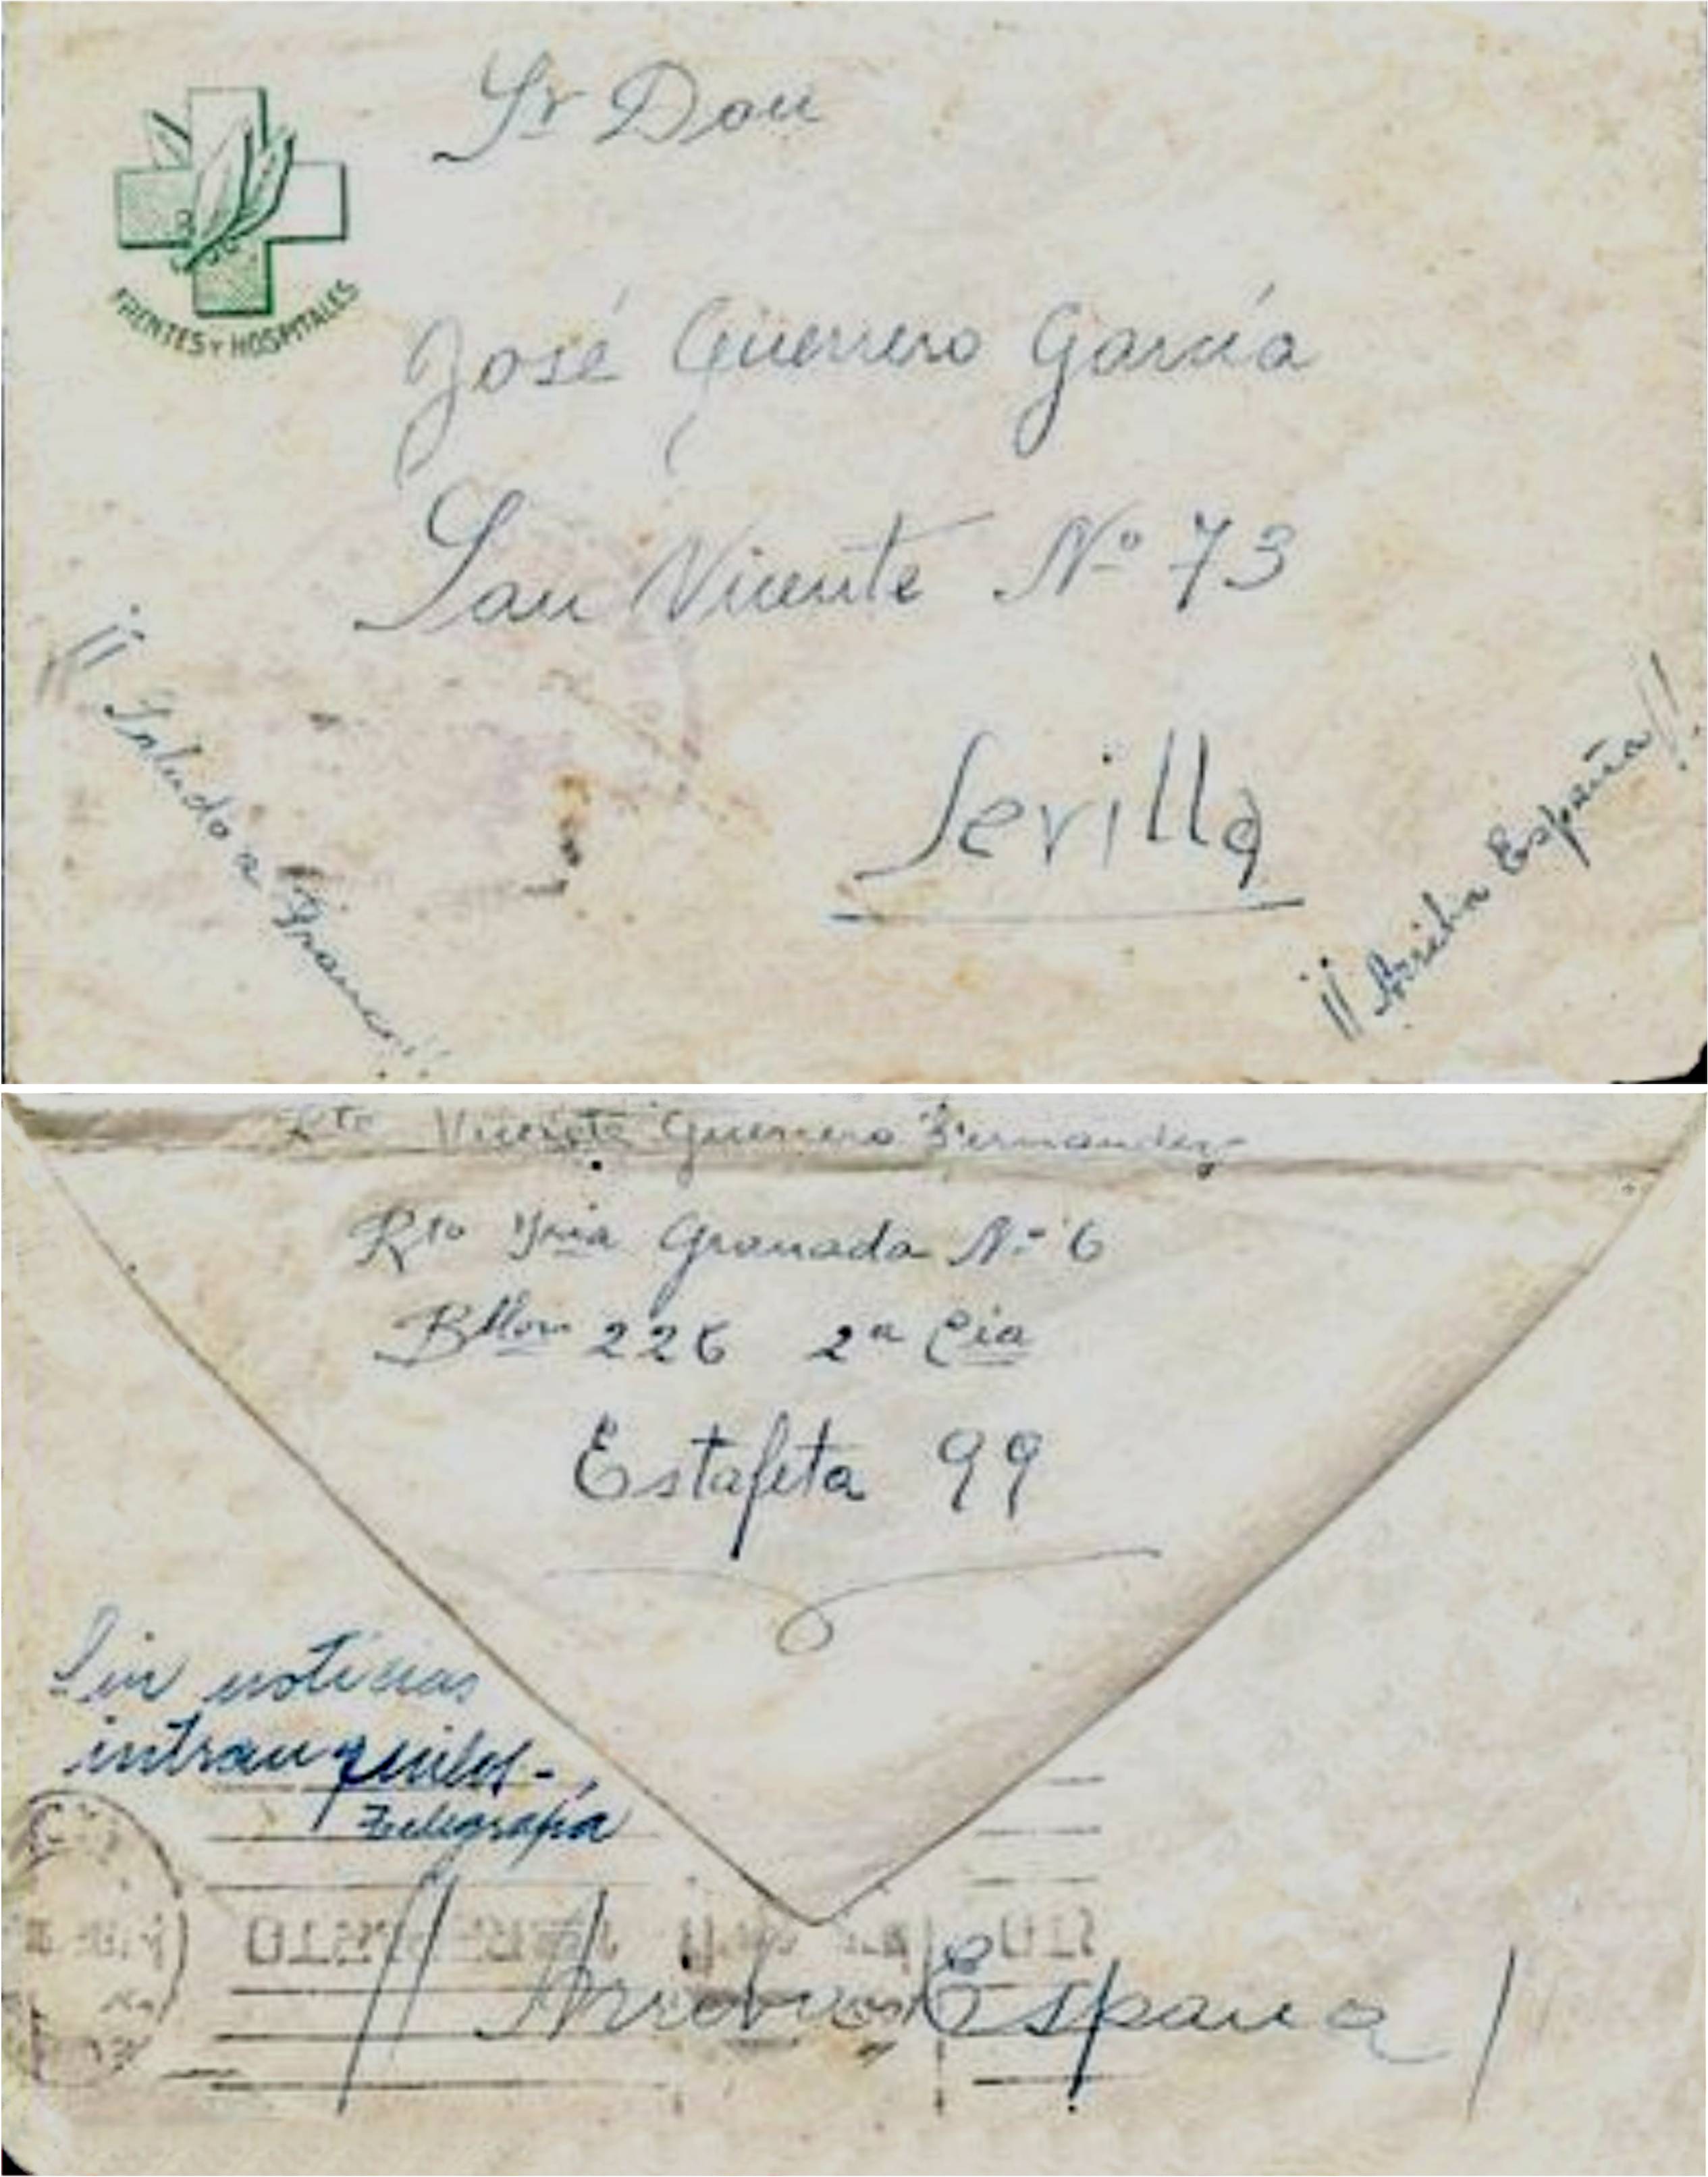 Sr Don
FRENTES Y HOSPITALES
José Guerrero García
San Vicente Nº 73
Sevilla
¡¡Saludo a Franco!!
¡¡Arriba España!!
Rte Vicente Guerrero Fernandez
Rto Yria Granada Nº 6
Bllon 226 2ª Cia
Estafeta 99
Sin noticias
intranquilos-,
Telegrafia
¡¡Arriba España!